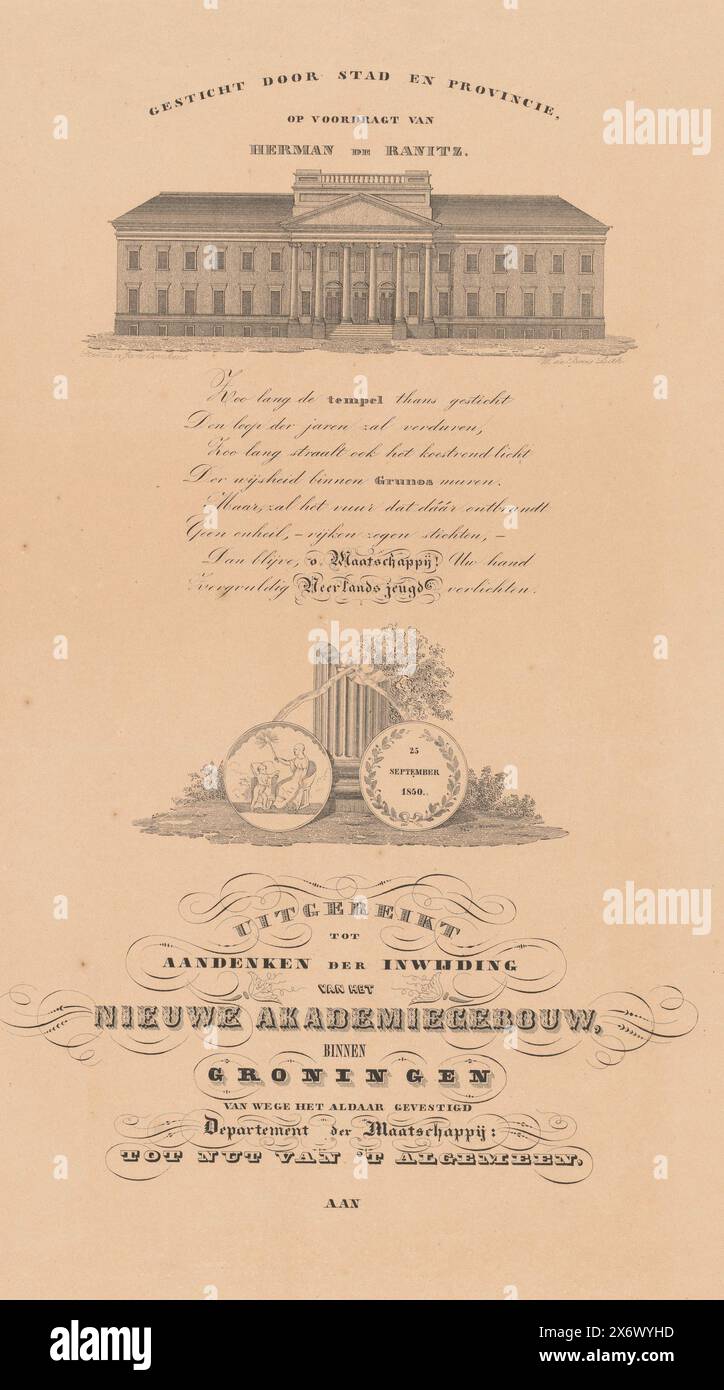 GESTICHT DOOR STAD EN PROVINCIE,
OP VOORDRAGT VAN
HERMAN DE RANITZ.
Zoo lang de tempel thans gesticht
Den loop der jaren zal verduren,
Zoo lang straalt ook het koestrend licht
Der wijsheid binnen Grunoa muren.
Maar, zal het vuur dat dáár ontbrandt
Geen onheil, – rijken zegen stichten, –
Dan blijve, o Maatschappij! Uw hand
Zorgvuldig Neerlands jeugd verlichten.
25
SEPTEMBER
1850.
UITGEREIKT
TOT
AANDENKEN DER INWIJDING
VAN HET
NIEUWE AKADEMIEGEBOUW,
BINNEN
GRONINGEN
VAN WEGE HET ALDAAR GEVESTIGD
Departement der Maatschappij:
TOT NUT VAN 'T ALGEMEEN,
AAN
alamy
a
alamy
Image ID: 2X6WYHD
www.alamy.com